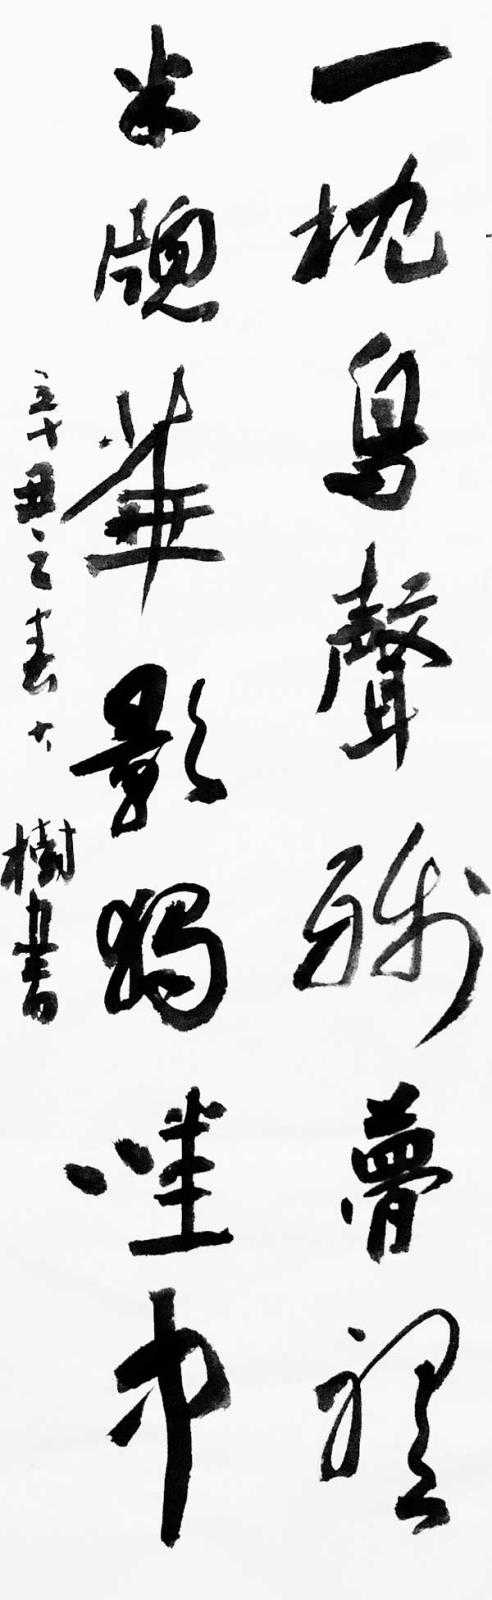 一枕鳥聲殘夢裡
半牕華影獨唫中
辛丑之春大樹書